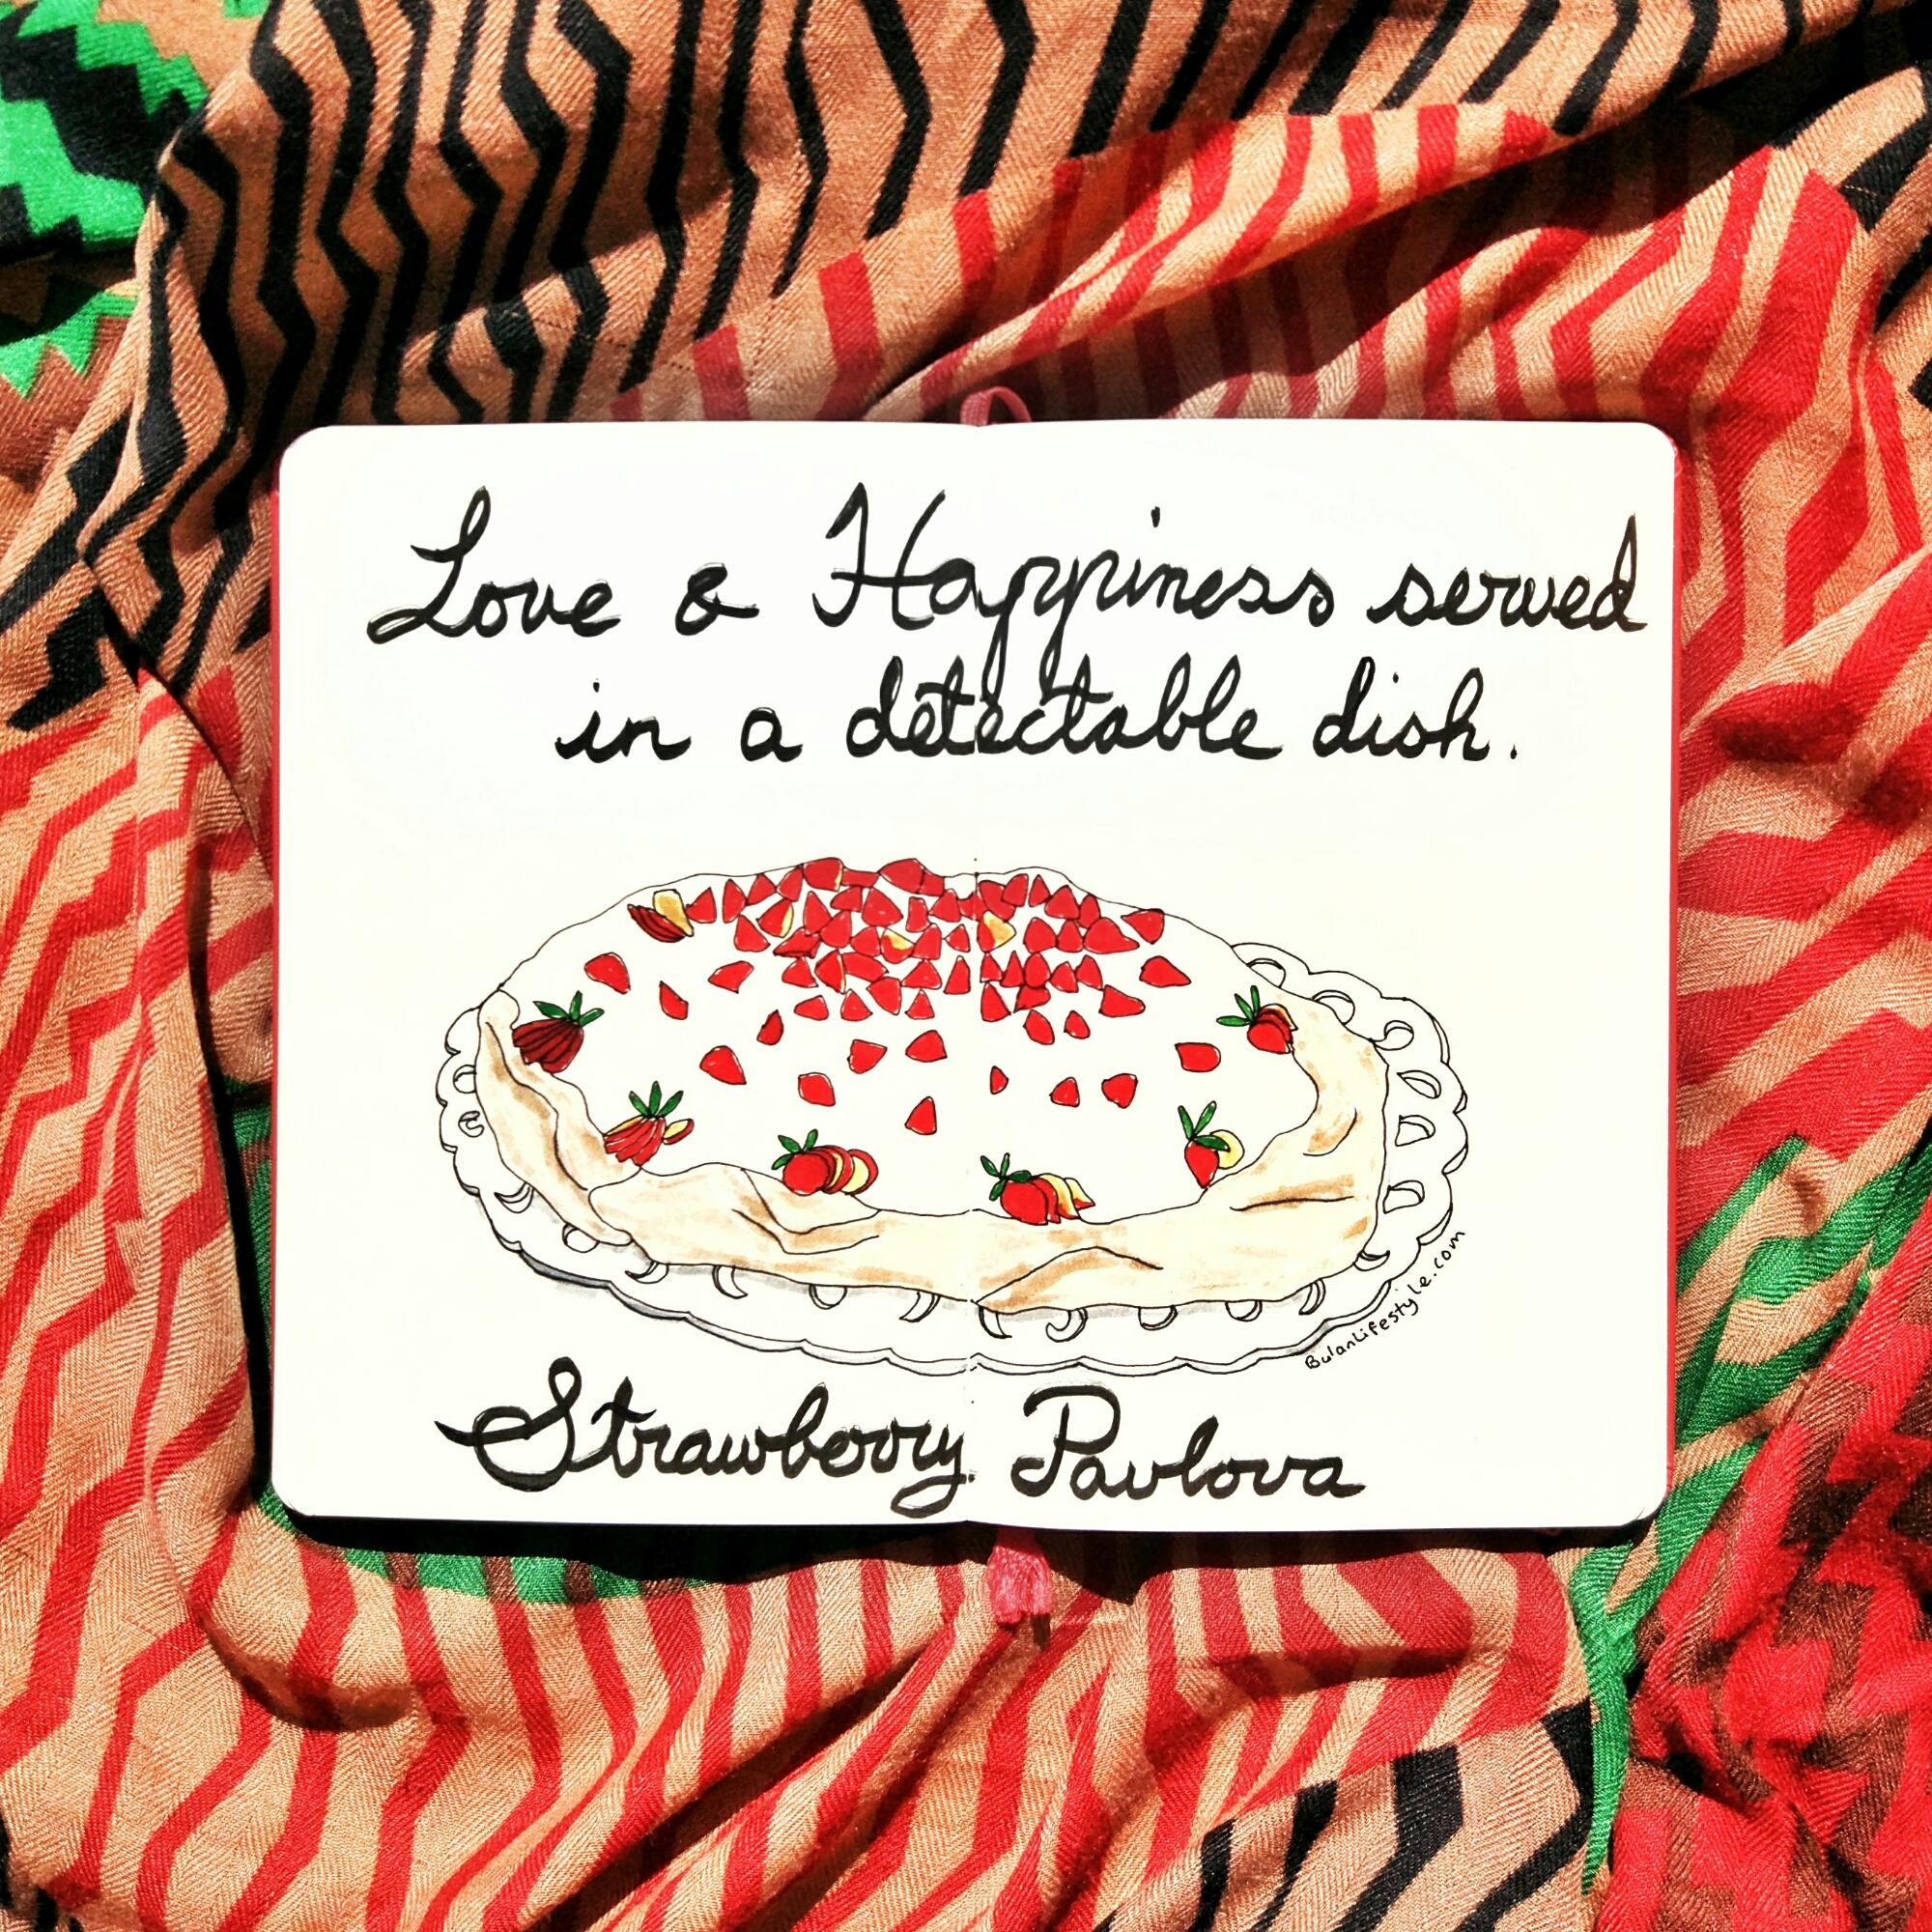 Love & Happiness served
in a detectable dish.
BulanLifestyle.com
Strawberry Pavlova